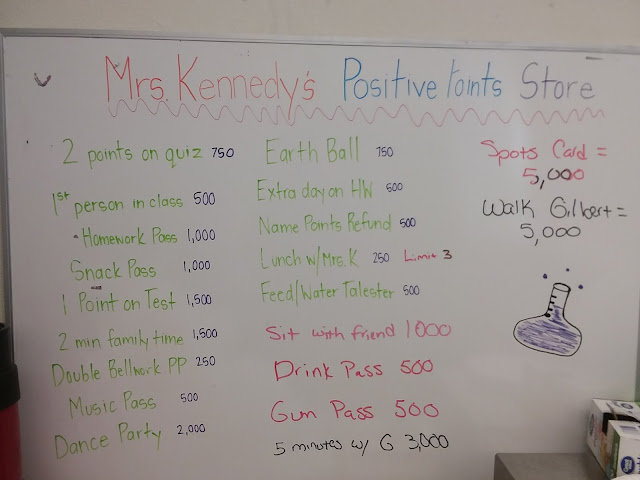 Mrs. Kennedy's Positive Points Store
2 points on quiz 750
1st person in class 500
Homework Pass 1,000
Snack Pass 1,000
1 Point on Test 1,500
2 min family time 1,500
Double Bellwork PP 250
Music Pass 500
Dance Party 2,000
Earth Ball 750
Extra day on HW 500
Name Points Refund 500
Lunch w/ Mrs. K 250 Limit 3
Feed/Water Talester 500
Sit with friend 1000
Drink Pass 500
Gum Pass 500
5 minutes w/ G 3,000
Spots Card =
5,000
Walk Gilbert =
5,000